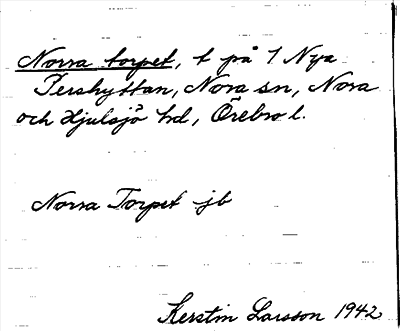 Norra torpet, t på 1 Nya
Pershyttan, Nora sn, Nora
och Hjulsjö hd, Örebro l.
Norra Torpet jb
Kerstin Larsson 1942